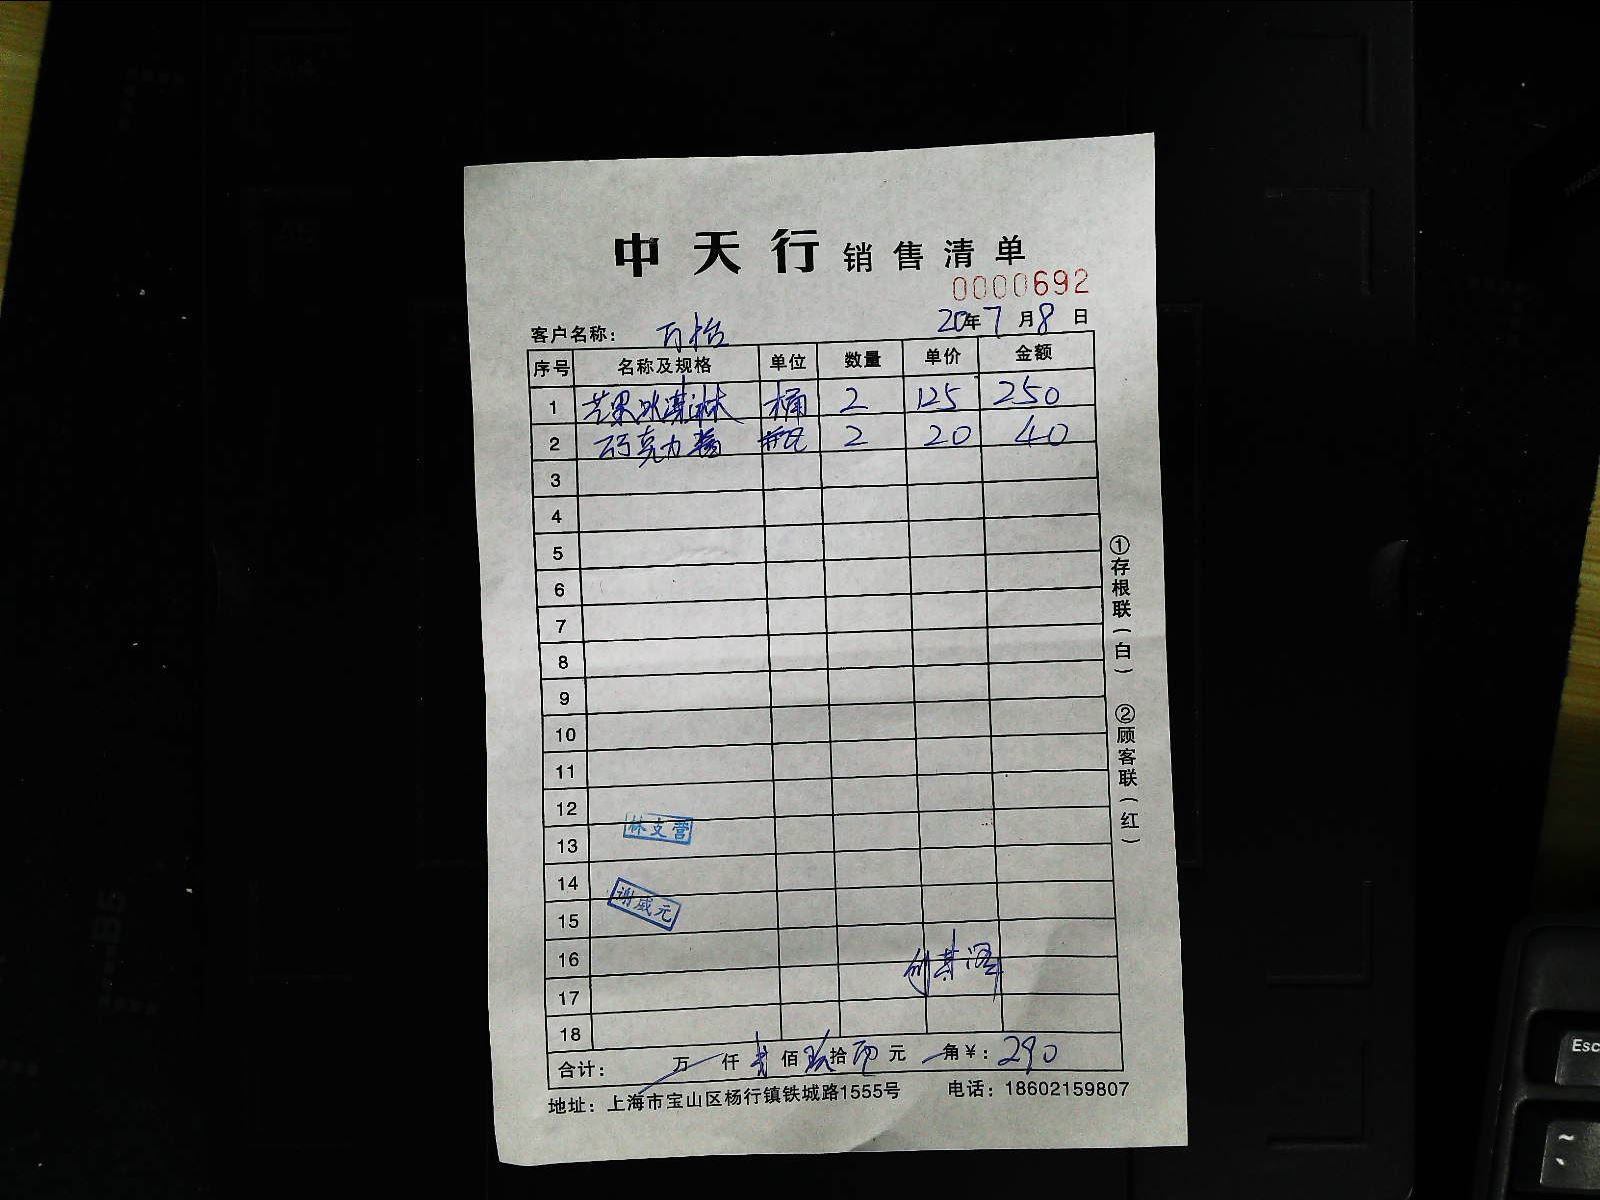 中天行销售清单
0000692
客户名称： 万怡 20年7月8日
序号 名称及规格 单位 数量 单价 金额
1 芒果冰淇淋 桶 2 125 250
2 巧克力酱 瓶 2 20 40
3
4
5
6
7
8
9
10
11
12
13
14
15
16
17
18
林支营
谢威元
合计： 万 仟 佰 玖拾 元 角¥：290
地址：上海市宝山区杨行镇铁城路1555号 电话：18602159807
①存根联（白） ②顾客联（红）
Esc
~